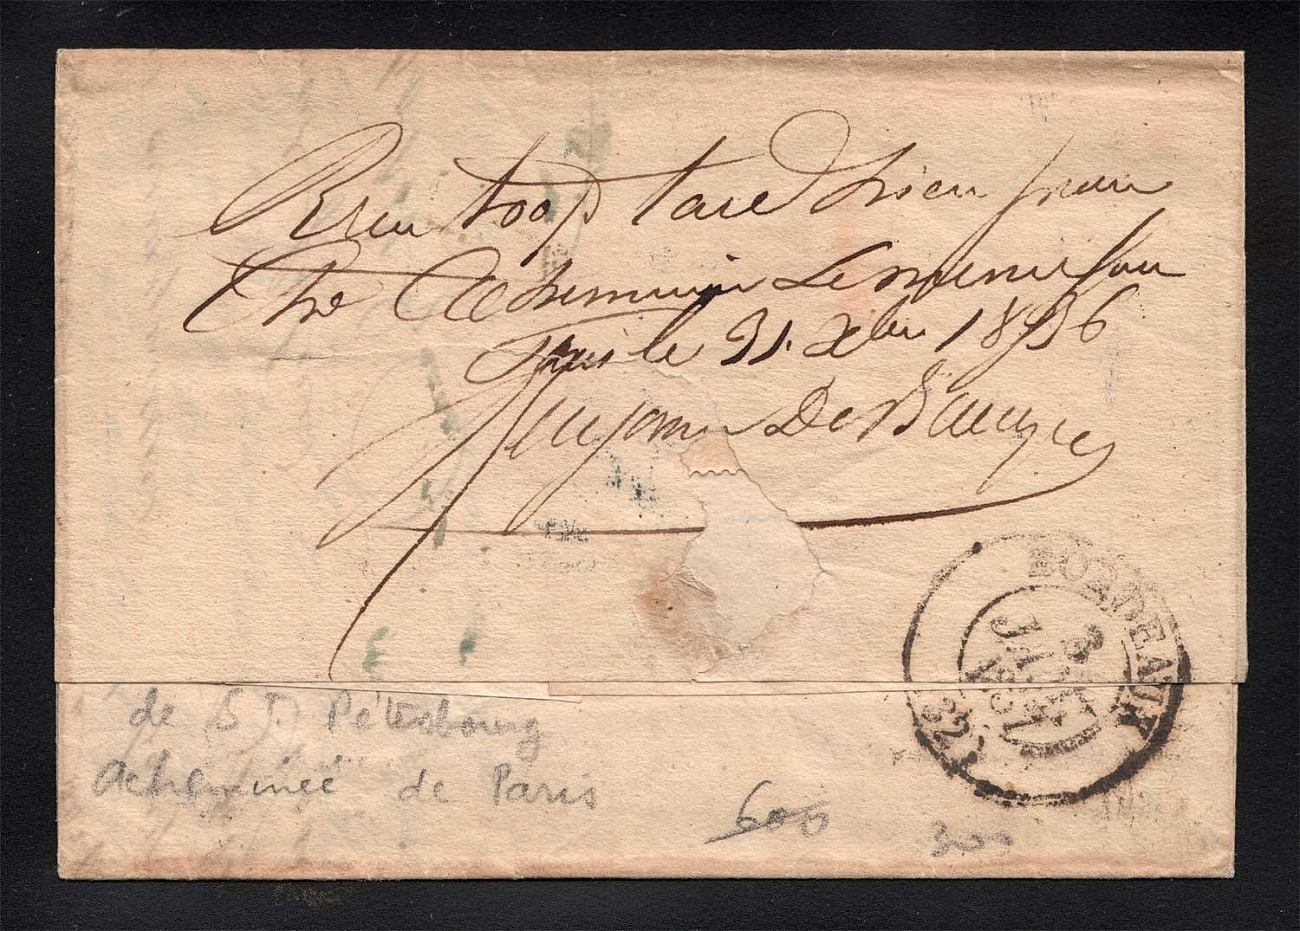 Recu trop tard hier pour
Etre Achemminé Le même jour
Paris le 31. Xbre 1836
De
BORDEAUX
3
JANV
1837
(32)
de St. Pétersbourg
Acheminée de Paris
600
300